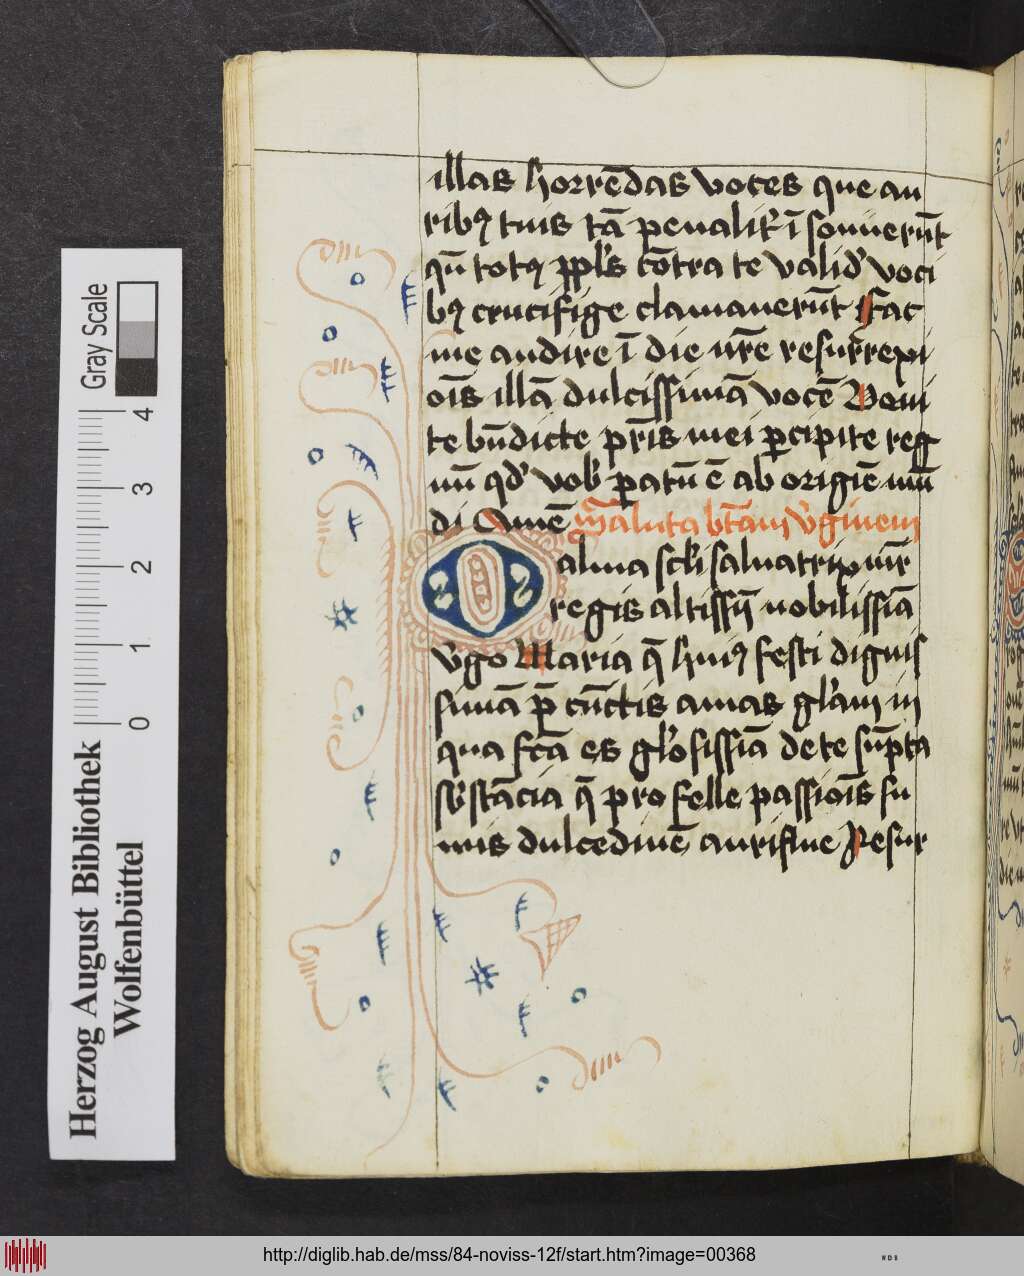 illas horrēdas voces que au
ribꝰ tuis tā penalit͛ ī sonuerūt
qn̄ totꝰ ppl̓s cōtra te valid̓ voci
bꝰ crucifige clamauerūt Fac
me audire ī die nr̄e resurrexi
oīs illā dulcissimā vocē Veni
te bn̄dicte pr̄is mei ꝑcipite reg
nū qd̓ vob̓ ꝑatū ē ab origīe mū
di Amē saluta btā̄m v̓ginem
O alma scī saluatrix nr̄
regis altissī nobilissīa
v̓go Maria q̄ huiꝰ festi dignis
simā p̄ cūctis amas gl̓am in
qua fcā es gl̓osissīa de te sūpta
sb̓stācia q̄ pro felle passiōis su
mis dulcedinē auriflue Resur
Gray Scale
4
3
2
1
0
Herzog August Bibliothek
Wolfenbüttel
http://diglib.hab.de/mss/84-noviss-12f/start.htm?image=00368